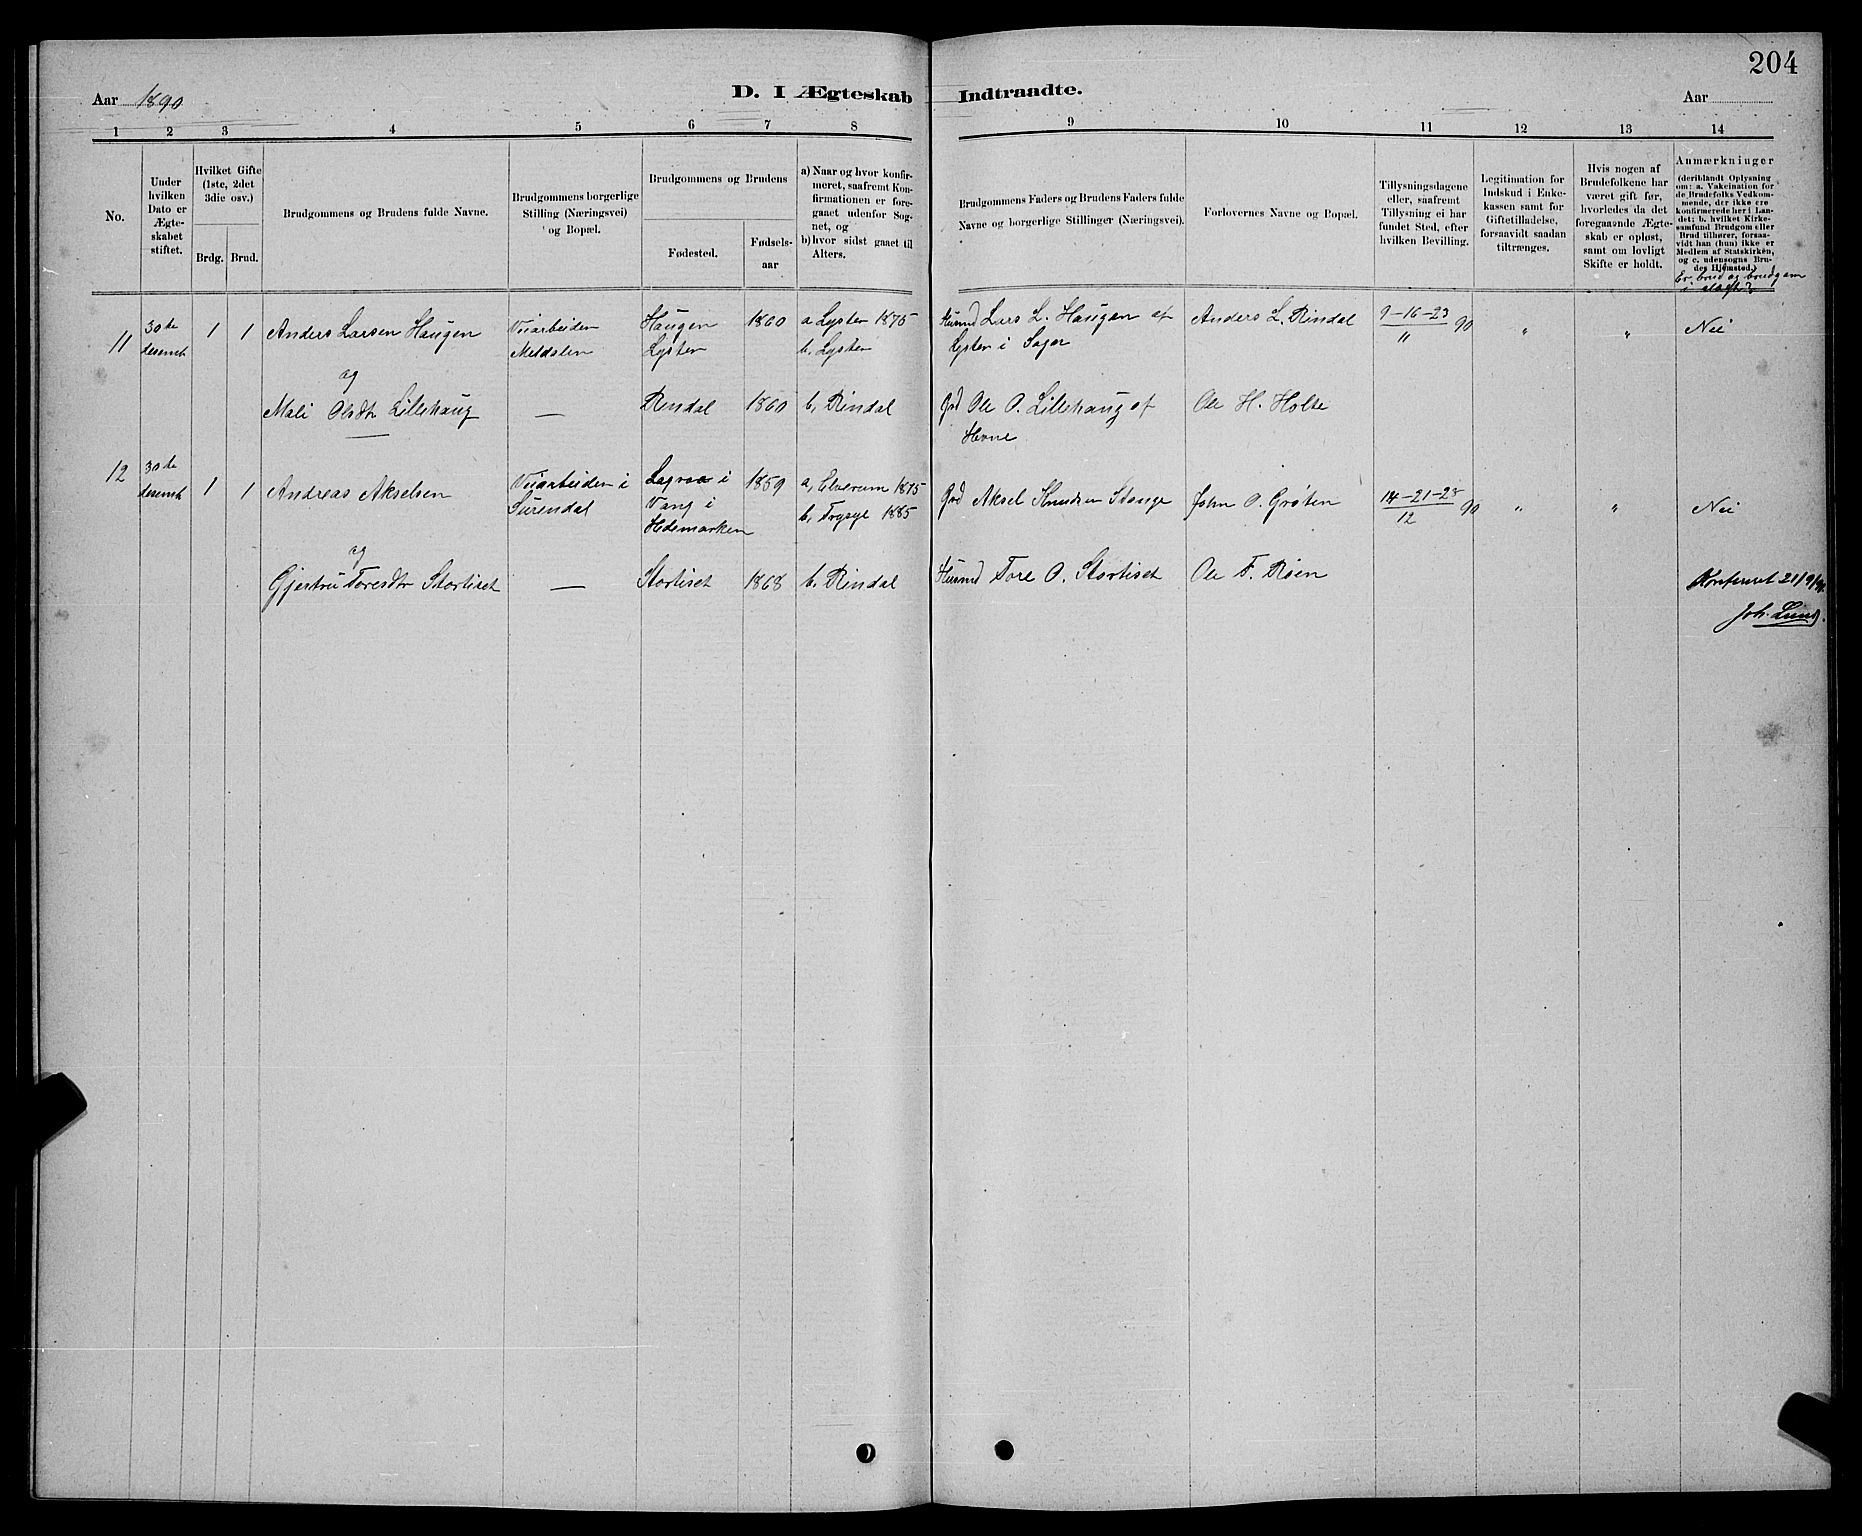 204
Aar 1890
D. I Ægteskab Indtraadte.
Aar
1 2 3 4 5 6 7 8 9 10 11 12 13 14
No.
Under hvilken Dato er Ægte-skabet stiftet.
Hvilket Gifte (1ste, 2det 3die osv.)
Brdg. Brud.
Brudgommens og Brudens fulde Navne.
Brudgommens borgerlige Stilling (Næringsvei) og Bopæl.
Brudgommens og Brudens
Fødested.
Fødsels-aar
a) Naar og hvor konfir-meret, saafremt Kon-firmationen er fore-gaaet udenfor Sog-net, og
b) hvor sidst gaaet til Alters.
Brudgommens Faders og Brudens Faders fulde Navne og borgerlige Stillinger (Næringsvei).
Forlovernes Navne og Bopæl.
Tillysningsdagene eller, saafremt Tillysning ei har fundet Sted, efter hvilken Bevilling.
Legitimation for Indskud i Enke-kassen samt for Giftetilladelse, forsaavidt saadan tiltrænges.
Hvis nogen af Brudefolkene har været gift før, hvorledes da det foregaaende Ægte-skab er opløst, samt om lovligt Skifte er holdt.
Anmærkninger
(deriblandt Oplysning om: a. Vakcination for de Brudefolks Vedkom-mende, der ikke ere konfirmerede her i Lan-det; b. hvilket Kirke-samfund Brudgom eller Brud tilhører, forsaa-vidt han (hun) ikke er Medlem af Statskirken, og c. udensogns Bru-des Hjemsted.)
Er brud og brudgom i slegt?
11 30te desemb 1 1 Anders Larsen Haugen Veiarbeider Meldalen Haugen Lyster 1860 a Lyster 1875 b, Lyster Husmd Lars L. Haugen af Lyster i Sogn Anders L. Rindal 9-16-23 / 11 90 " " Nei
og
Mali Olsdtr Lillehaug — Rindal 1860 b, Rindal Grd Ole O. Lillehaug af Hovne Ole H. Holte
12 30te desemb 1 1 Andreas Akselsen Veiarbeider i Surendal i Vang i Hedemarken 1859 a, Elverum 1875 b, Trysyl 1885 Grd Aksel Knudsen Stange John O. Grøten 14-21-28 / 12 90 " " Nei
og
Gjertru Toresdtr Stortiset — Stortiset 1868 b, Rindal Husmd Tore O. Stortiset Ole F. Røen
Konfereret 21/9
Joh. Lund.